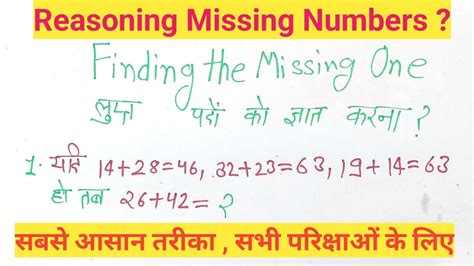 Reasoning Missing Numbers ?
Finding the Missing One
लुप्त पदों को ज्ञात करना ?
1. यदि 14+28=46, 32+23=63, 19+14=63
हो तब 26+42=?
सबसे आसान तरीका , सभी परिक्षाओं के लिए